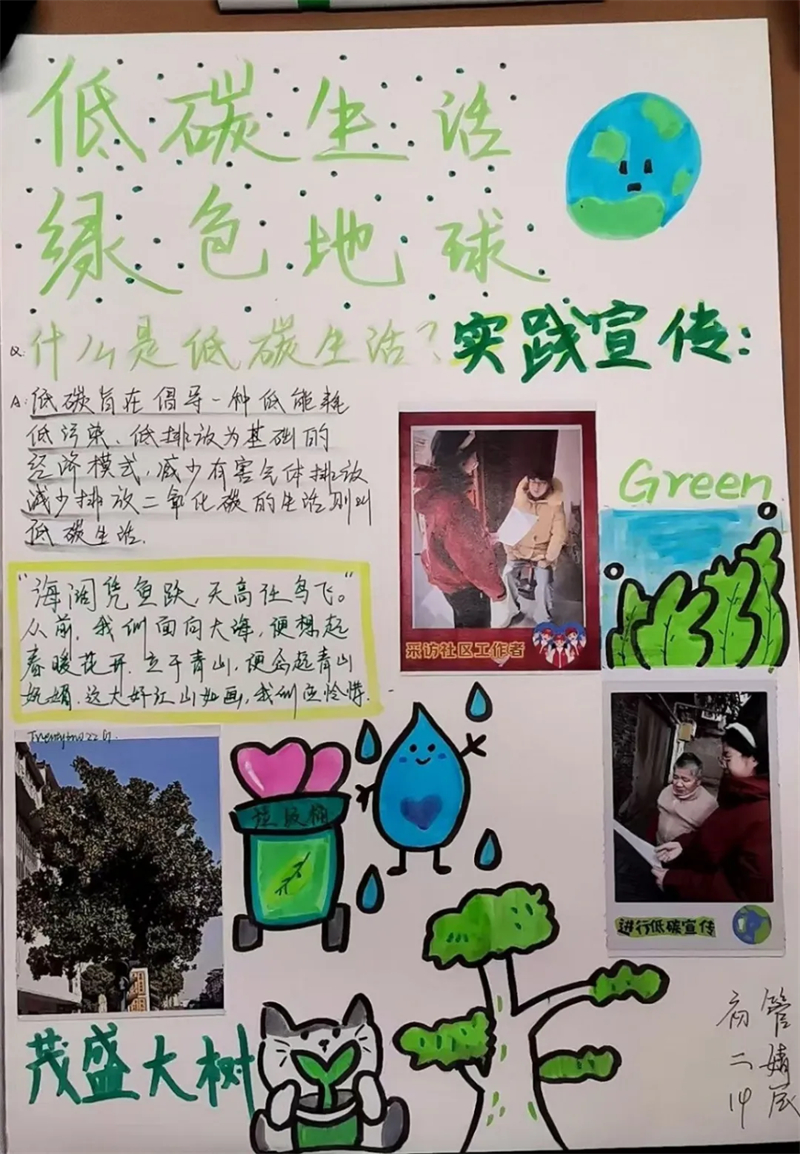 低碳生活
绿色地球
Q:什么是低碳生活?
A:低碳旨在倡导一种低能耗
低污染、低排放为基础的
经济模式,减少有害气体排放
减少排放二氧化碳的生活则叫
低碳生活.
实践宣传:
采访社区工作者
Green
"海阔凭鱼跃,天高任鸟飞。"
从前,我们面向大海,便想起
春暖花开.立于青山,便念起青山
妩媚.这大好江山如画,我们应怜惜.
垃圾桶
进行低碳宣传
茂盛大树
初二14
管婧